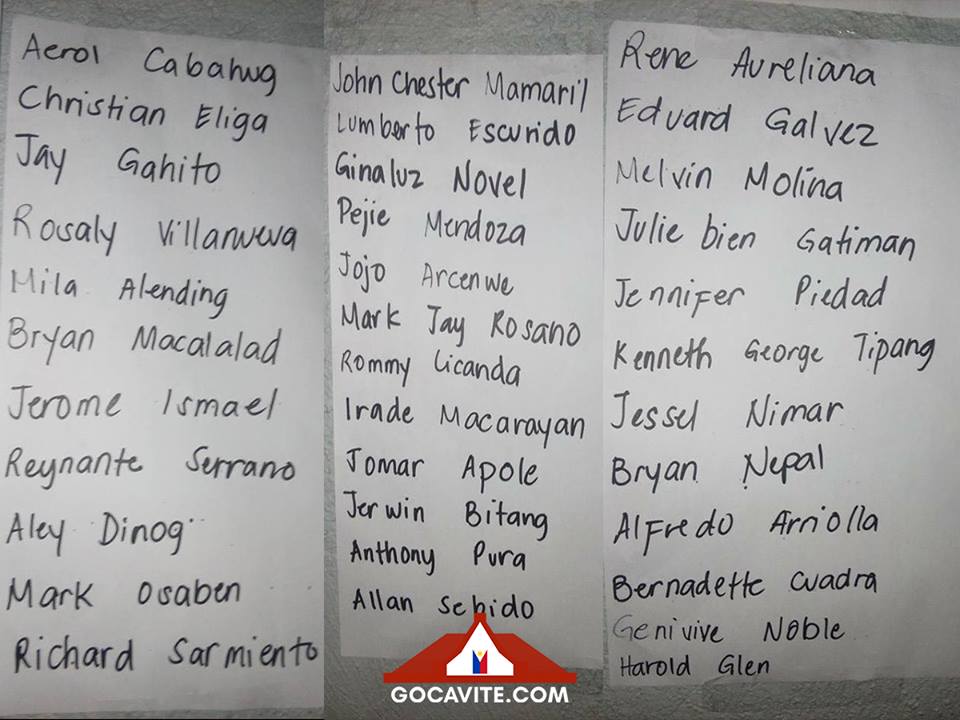 Aerol Cabahug
Christian Eliga
Jay Gahito
Rosaly Villanueva
Mila Alending
Bryan Macalalad
Jerome Ismael
Reynante Serrano
Aley Dinog
Mark Osaben
Richard Sarmiento
John Chester Mamaril
Lumberto Escurido
Ginaluz Novel
Pejie Mendoza
Jojo Arcenwe
Mark Jay Rosano
Rommy Licanda
Irade Macarayan
Jomar Apole
Jerwin Bitang
Anthony Pura
Allan Sebido
Rene Aureliana
Eduard Galvez
Melvin Molina
Julie bien Gatiman
Jennifer Piedad
Kenneth George Tipang
Jessel Nimar
Bryan Nepal
Alfredo Arriolla
Bernadette Cuadra
Genivive Noble
Harold Glen
GOCAVITE.COM